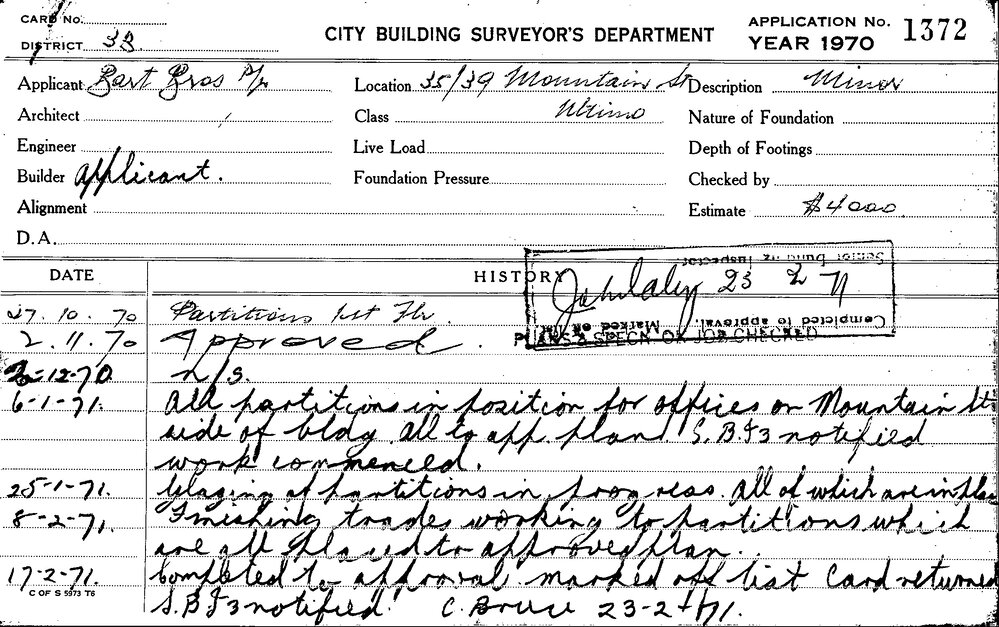 CARD No.
DISTRICT 3B.
CITY BUILDING SURVEYOR'S DEPARTMENT
APPLICATION No. 1372
YEAR 1970
Applicant Gart Bros P/L
Location 35/39 Mountain St
Description Minor
Architect
Class Ultimo
Nature of Foundation
Engineer
Live Load
Depth of Footings
Builder applicant.
Foundation Pressure
Checked by
Alignment
Estimate $4000
D.A.
DATE
HISTORY
Senior Building Inspector
23 2 71
Completed to approval. Marked off list
PLANS & SPECN OK JOB CHECKED
27.10.70 Partitions 1st Flr.
2.11.70 Approved.
12-70 n/s.
6-1-71. All partitions in position for offices on Mountain St
side of bldg All to app. plan S.B.I3 notified
work commenced.
25-1-71. Glazing of partitions in progress. All of which are in
8-2-71. Finishing trades working to partitions which
are all placed to approved plan.
17-2-71. Completed to approval marked off list Card returned
S.B.I3 notified. C. Bruce 23-2-71.
C OF S 5973 T6